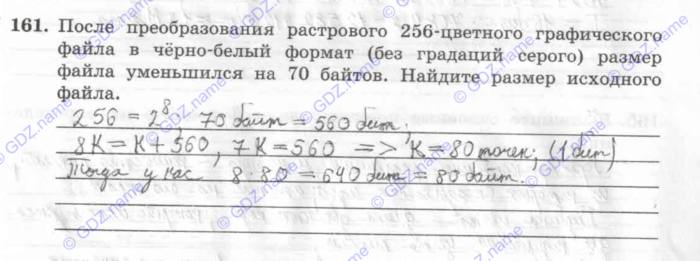 161. После преобразования растрового 256-цветного графического
файла в чёрно-белый формат (без градаций серого) размер
файла уменьшился на 70 байтов. Найдите размер исходного
файла.
256 = 2⁸, 70 байт = 560 бит;
8К = К + 560, 7К = 560 => К = 80 точек; (1 бит)
Тогда у нас 8 · 80 = 640 бит = 80 байт.
© GDZ.name